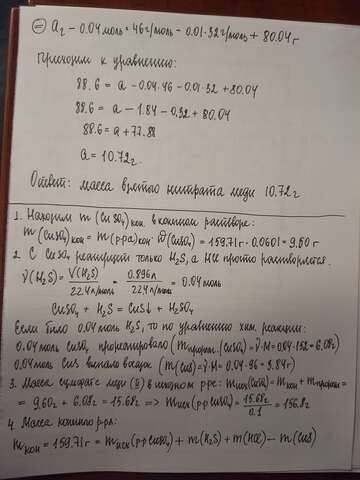 = a г - 0.04 моль · 46 г/моль - 0.01 · 32 г/моль + 80.04 г
Приходим к уравнению:
88.6 = a - 0.04·46 - 0.01·32 + 80.04
88.6 = a - 1.84 - 0.32 + 80.04
88.6 = a + 77.88
a = 10.72 г.
Ответ: масса взятого нитрата меди 10.72 г
1. Находим m (CuSO₄) кон. в конечном растворе:
m (CuSO₄)кон = m(р-ра)кон · ω(CuSO₄) = 159.71 г · 0.0601 = 9.60 г
2. С CuSO₄ реагирует только H₂S, а HCl просто растворяется.
ν(H₂S) = V(H₂S) / 22.4 л/моль = 0.896 л / 22.4 л/моль = 0.04 моль
CuSO₄ + H₂S = CuS↓ + H₂SO₄
Если было 0.04 моль H₂S, то по уравнению хим. реакции:
0.04 моль CuSO₄ прореагировало (m прореаг. (CuSO₄) = ν·M = 0.04·152 = 6.08 г)
0.04 моль CuS выпало в осадок (m(CuS) = ν·M = 0.04·96 = 3.84 г)
3. Масса сульфата меди (II) в исходном р-ре: mисх(CuSO₄) = mкон + mпрореаг =
= 9.60 г + 6.08 г = 15.68 г => mисх(р-р CuSO₄) = 15.68 г / 0.1 = 156.8 г
4. Масса конечного р-ра:
mкон = 159.71 г = mисх(р-р CuSO₄) + m(H₂S) + m(HCl) - m(CuS)